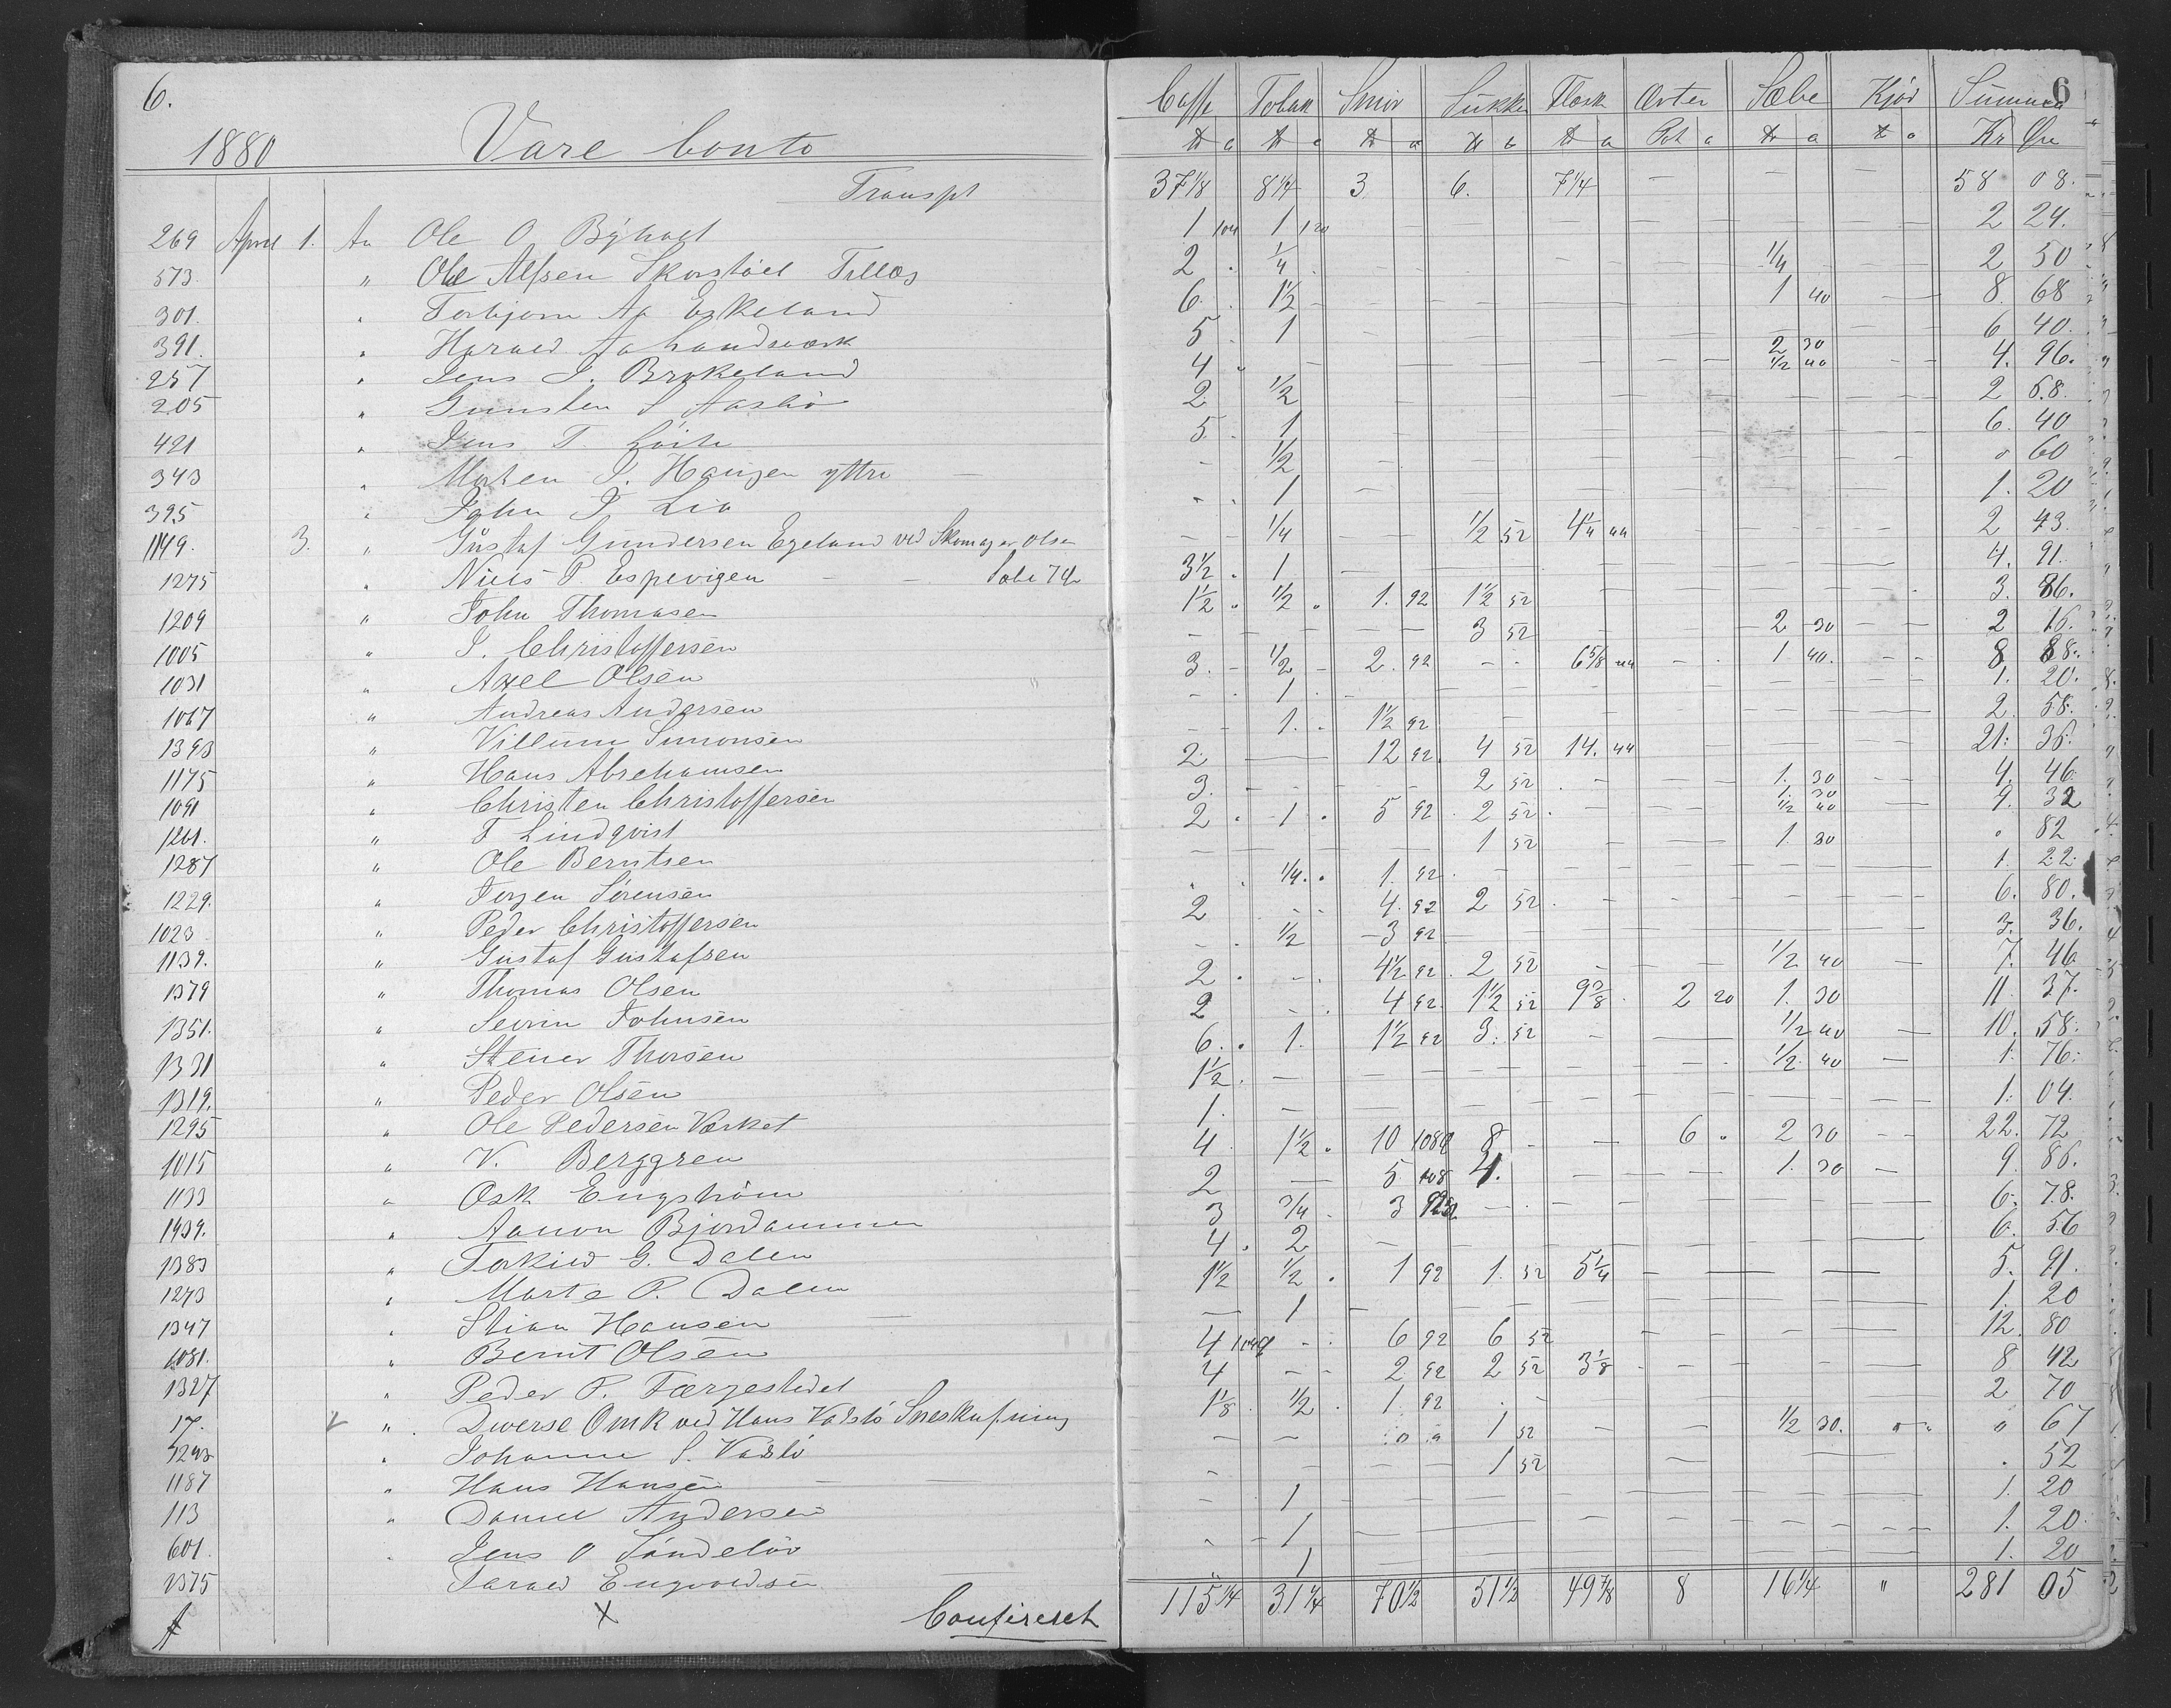 6.
1880 Vare Conto
Caffe Tobak Smör Sukke Flæsk Ærter Sæbe Kjød Summa 6
℔ a ℔ a ℔ a ℔ a ℔ a Pot a ℔ a ℔ a Kr Øre
Transpt 37 1/8 8 1/4 3 6. 7 1/4 — — — 58 08.
269 April 1. An Ole O 1 104 1 120 — — — — — — 2 24.
573. " Ole Alfsen Tillæg 2 . 1/4 . — — — — 1/4 — 2 50
301. " Torbjørn Aa Eskeland 6. . 1 1/2 — — — — 1 40 — 8 68
391. " Harald Aa 5 . 1 — — — — — — 6 40.
257 " Jens J. Brekeland 4 . — — — — — 2 30 1/2 40 — 4. 96.
205 " Gunsten S Aasbö 2. 1/2 — — — — — — 2 68.
421 " Jens T. 5. . 1 — — — — — — 6. 40
343 " Morten S. Haugen yttre — — 1/2 — — — — — — " 60
395 " John J. Lia - . 1 — — — — — — 1. 20
1149. 3. " Gustaf Gundersen Egeland ved Skomager Olsen — — 1/4 — 1/2 52 4 1/4 44 — — — 2 43.
1275 " Niels P. Espevigen — — 3 1/2 . 1 — — — — — — 4. 91.
1209 " John Thomasen 1 1/2 . 1/2 . 1. 92 1 1/2 52 — — — — 3. 86.
1005 " S. Christoffersen — — — 3 52 — — 2 30 — 2 16.
1031 " Axel Olsen 3. - 1/2 - 2. 92 - - 6 5/8 44 - . 1 40. - - 8 88.
1067 " Andreas Andersen - . 1 . — — — — — — 1. 20.
1393 " Villum Simonsen - - 1. . 1 1/2 92 — — — — — 2. 58.
1175 " Hans Abrehamsen 2. — 12 92. 4 52 14. 44 — — — 21. 36.
1091 " Christen Christoffersen 3. — — 2 52 — — 1. 30 - - 4. 46
1201. " T Lindqvist 2 . 1 . 5 92 . 2 52 . — — 1. 30 1/2 40 — 9. 32
1287 " Ole Berntsen — — — 1 52 — — 1. 30 — . 82
1229. " Jørgen Sørensen . . 1/4. . 1. 92. — — — — — 1. 22.
1023 " Peder Christoffersen 2 - - 4. 92 2 52 . — — — — 6. 80.
1139. " Gustaf Gustafsen - . 1/2 — 3 92 — — — — — 3. 36.
1379 " Thomas Olsen 2 . - . 4 1/2 92. 2 52 — — 1/2 40 — 7. 46
1351. " Sevrin Johnsen 2 - . 4 92. 1 1/2 52 9 3/8 . 2 20 1. 30 11. 37.
1331 " Stener Thorsen 6. . 1. 1 1/2 92 3. 52 — — 1/2 40 — 10. 58.
1319. " Peder Olsen 1 1/2 . — — — — — 1/2. 40 — 1. 76.
1295 " Ole Pedersen Værket 1. — — — — — — — 1. 04.
1015 " V. Berggren 4. 1 1/2 . 10 108 8 - — 6 . 2 30 - - 22. 72
1133 " Osk Engström 2 — 5 108 4. — — — 1. 30 — 9. 86.
1439. " Aanon 3 3/4 - 3 92 - . — — — — 6. 78.
1383 " Torkild G. Dalen 4 . 2 — — — — — — 6. 56
1273 " Marte P. Dalen 1 1/2 1/2 . 1 92 1. 52 5 1/4 — — — 5. 91.
1347 " Stian Hansen — — 1 — — — — — — 1. 20
1081. " Bernt Olsen 4 104 - . 6 92 6 52 — — — — 12. 80
1327 " Peder P. Færgestedet 4 - - 2 92 2 52 3 1/8 . — — — 8 42
17. " Diverse Omk ved Hans Vadslö 1 1/8 . 1/2 . 1. 92 . - — — — — 2 70
" Johanne S. — — " " 1 52 — — 1/2 30. " " " 67
1187 " Hans Hansen — — - — — 1 52 — — — . 52
113 " Daniel Andersen - . 1 — — — — — — 1. 20
601 " Jens O " - 1 — — — — — — 1. 20.
1375 Tarald Engvoldsen — " 1 — — — — — — 1. 20
X 115 1/4 31 1/4 70 1/2 51 1/2 49 7/8 8 16 1/4 " 281 05